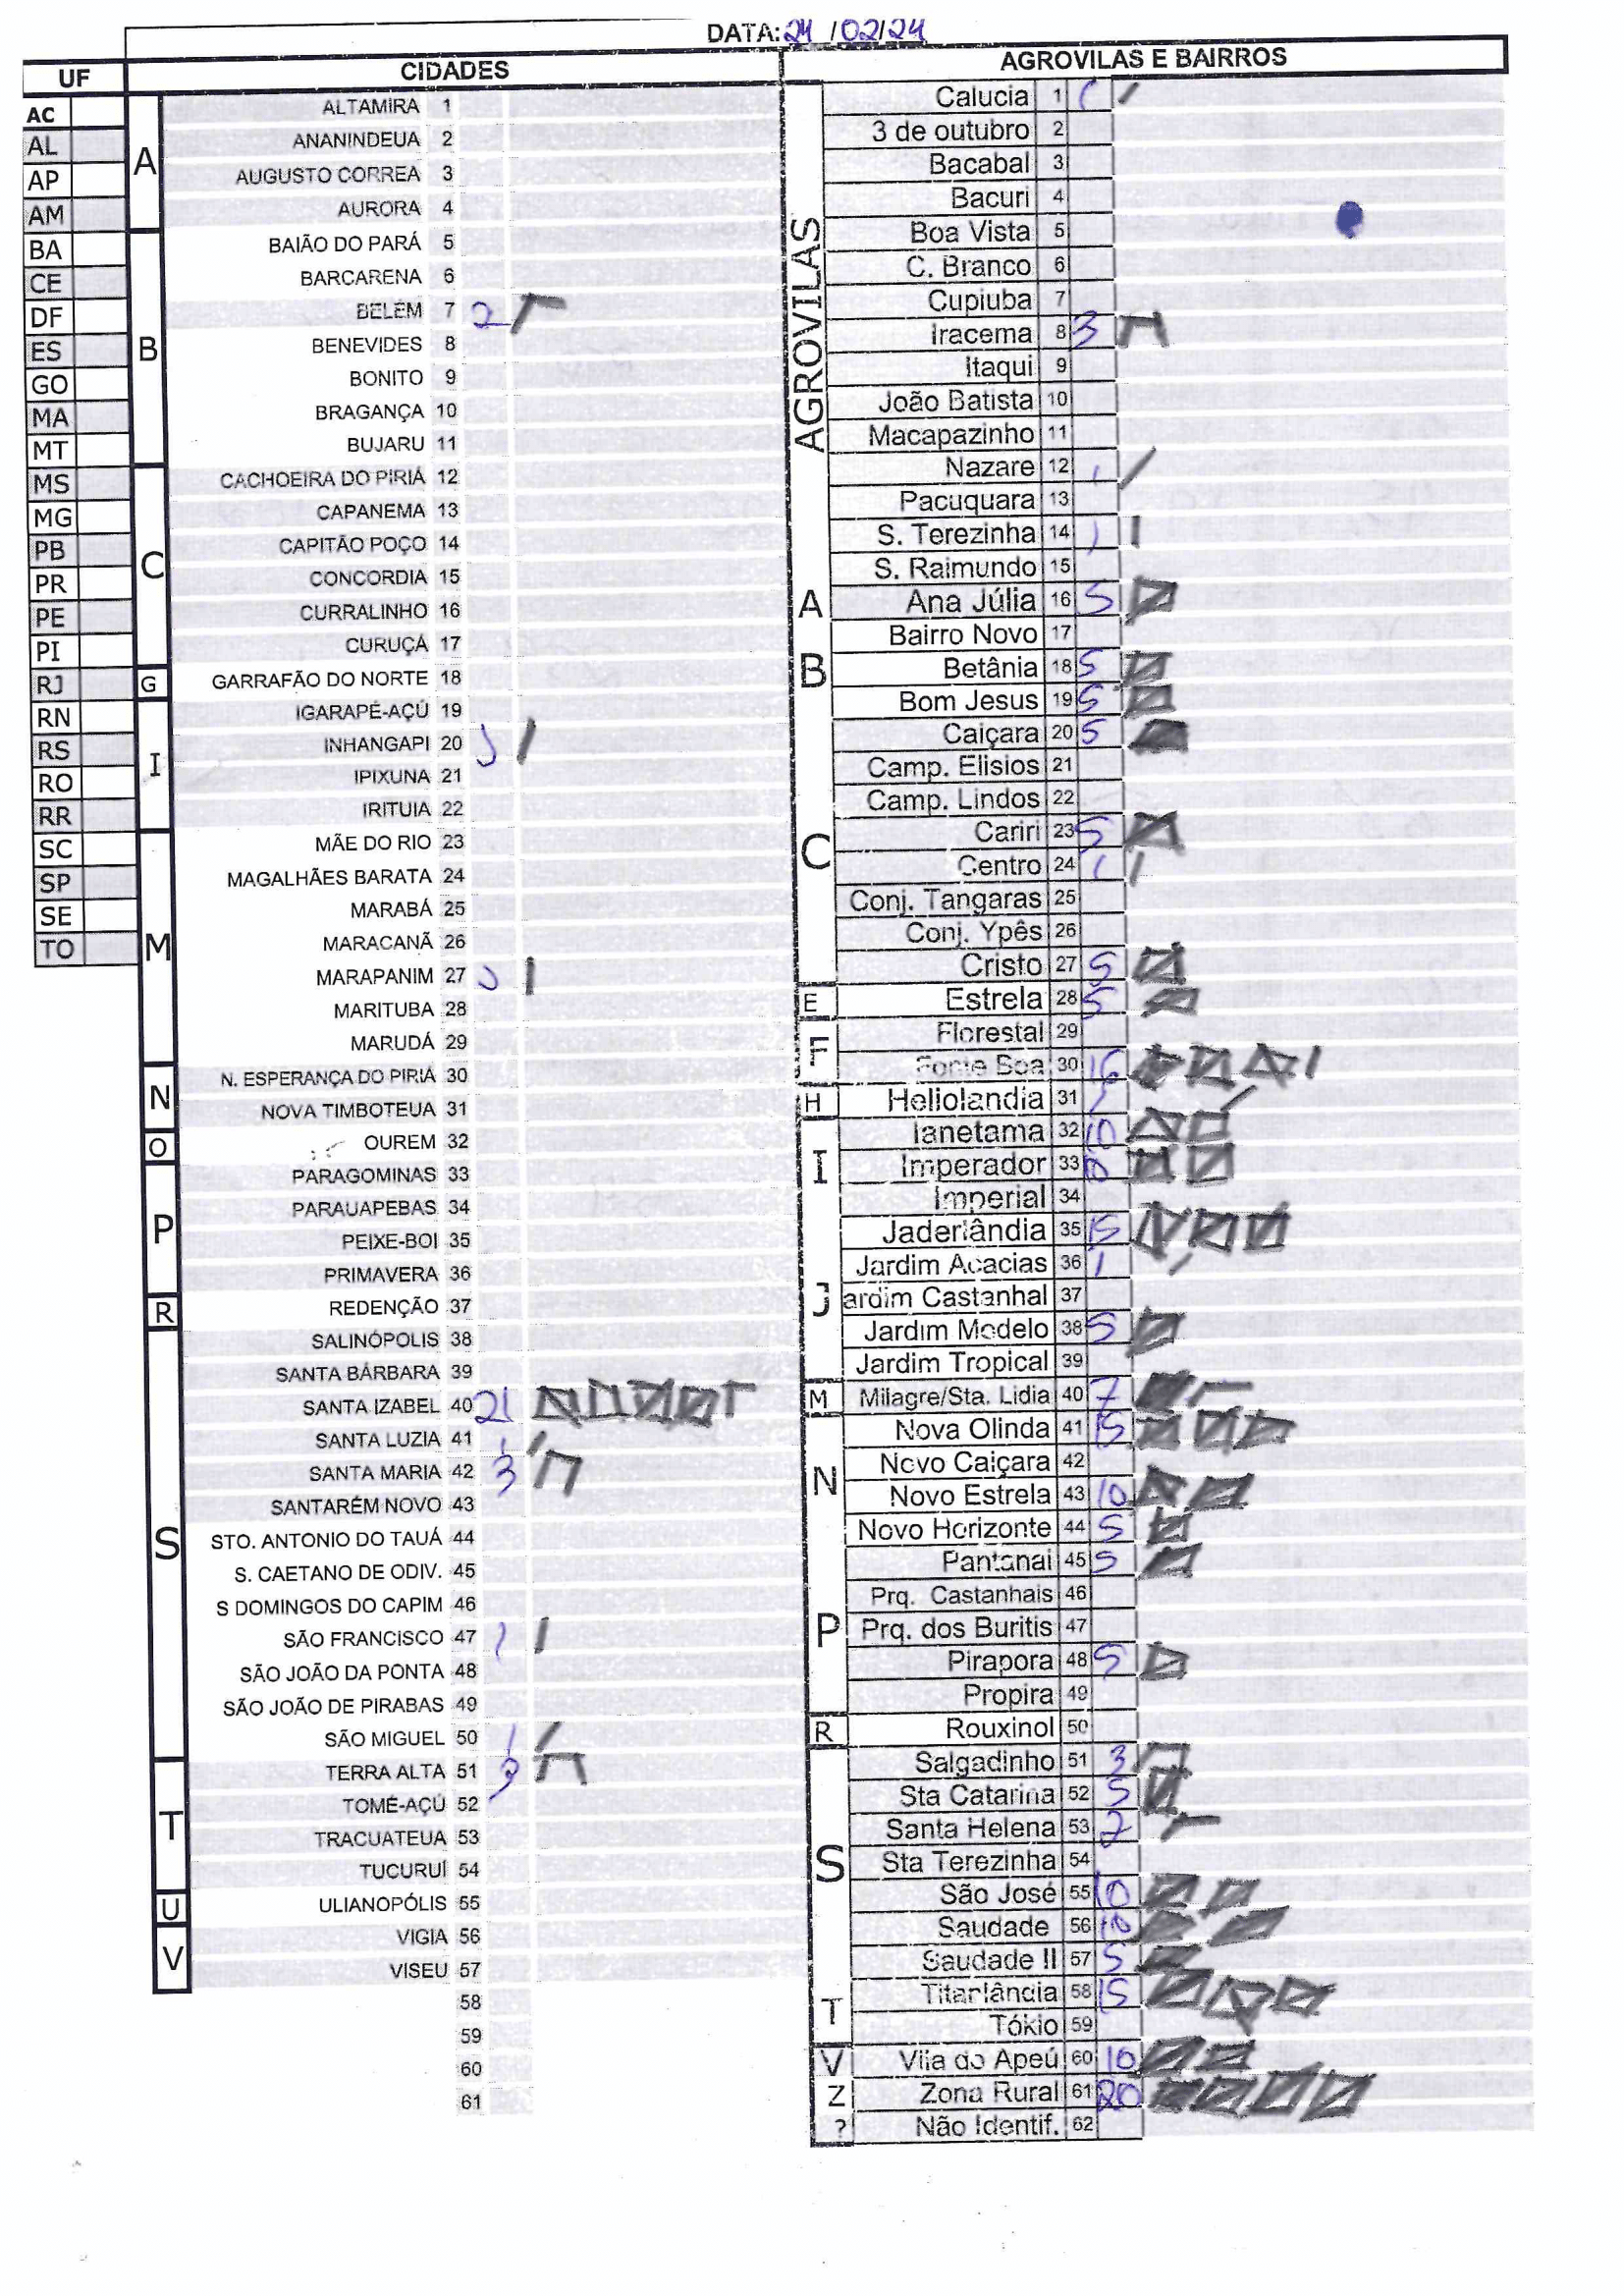 DATA: 24/02/24
UF
CIDADES
AGROVILAS E BAIRROS
AC
AL
AP
AM
BA
CE
DF
ES
GO
MA
MT
MS
MG
PB
PR
PE
PI
RJ
RN
RS
RO
RR
SC
SP
SE
TO
A
ALTAMIRA 1
ANANINDEUA 2
AUGUSTO CORREA 3
AURORA 4
B
BAIÃO DO PARÁ 5
BARCARENA 6
BELÉM 7 2
BENEVIDES 8
BONITO 9
BRAGANÇA 10
BUJARU 11
C
CACHOEIRA DO PIRIÁ 12
CAPANEMA 13
CAPITÃO POÇO 14
CONCORDIA 15
CURRALINHO 16
CURUÇÁ 17
G
GARRAFÃO DO NORTE 18
I
IGARAPÉ-AÇÚ 19
INHANGAPI 20 1
IPIXUNA 21
IRITUIA 22
M
MÃE DO RIO 23
MAGALHÃES BARATA 24
MARABÁ 25
MARACANÃ 26
MARAPANIM 27 1
MARITUBA 28
MARUDÁ 29
N
N. ESPERANÇA DO PIRIÁ 30
NOVA TIMBOTEUA 31
O
OUREM 32
P
PARAGOMINAS 33
PARAUAPEBAS 34
PEIXE-BOI 35
PRIMAVERA 36
R
REDENÇÃO 37
S
SALINÓPOLIS 38
SANTA BÁRBARA 39
SANTA IZABEL 40 21
SANTA LUZIA 41 1
SANTA MARIA 42 3
SANTARÉM NOVO 43
STO. ANTONIO DO TAUÁ 44
S. CAETANO DE ODIV. 45
S DOMINGOS DO CAPIM 46
SÃO FRANCISCO 47 1
SÃO JOÃO DA PONTA 48
SÃO JOÃO DE PIRABAS 49
SÃO MIGUEL 50 1
T
TERRA ALTA 51 3
TOMÉ-AÇÚ 52
TRACUATEUA 53
TUCURUÍ 54
U
ULIANOPÓLIS 55
V
VIGIA 56
VISEU 57
58
59
60
61
AGROVILAS
Calucia 1 1
3 de outubro 2
Bacabal 3
Bacuri 4
Boa Vista 5
C. Branco 6
Cupiuba 7
Iracema 8 3
Itaqui 9
João Batista 10
Macapazinho 11
Nazare 12 1
Pacuquara 13
S. Terezinha 14 1
S. Raimundo 15
A
Ana Júlia 16 5
B
Bairro Novo 17
Betânia 18 5
Bom Jesus 19 5
C
Caiçara 20 5
Camp. Elisios 21
Camp. Lindos 22
Cariri 23 5
Centro 24 1
Conj. Tangaras 25
Conj. Ypês 26
Cristo 27 5
E
Estrela 28 5
F
Florestal 29
Fonte Boa 30 16
H
Heliolandia 31 1
I
Ianetama 32 10
Imperador 33 10
Imperial 34
J
Jaderlândia 35 15
Jardim Acacias 36 1
ardim Castanhal 37
Jardim Modelo 38 5
Jardim Tropical 39
M
Milagre/Sta. Lidia 40 7
N
Nova Olinda 41 15
Novo Caiçara 42
Novo Estrela 43 10
Novo Horizonte 44 5
P
Pantanal 45 5
Prq. Castanhais 46
Prq. dos Buritis 47
Pirapora 48 5
Propira 49
R
Rouxinol 50
S
Salgadinho 51 3
Sta Catarina 52 5
Santa Helena 53 2
Sta Terezinha 54
São José 55 10
Saudade 56 10
Saudade II 57 5
T
Titanlândia 58 15
Tókio 59
V
Vila do Apeú 60 10
Z
Zona Rural 61 20
?
Não Identif. 62